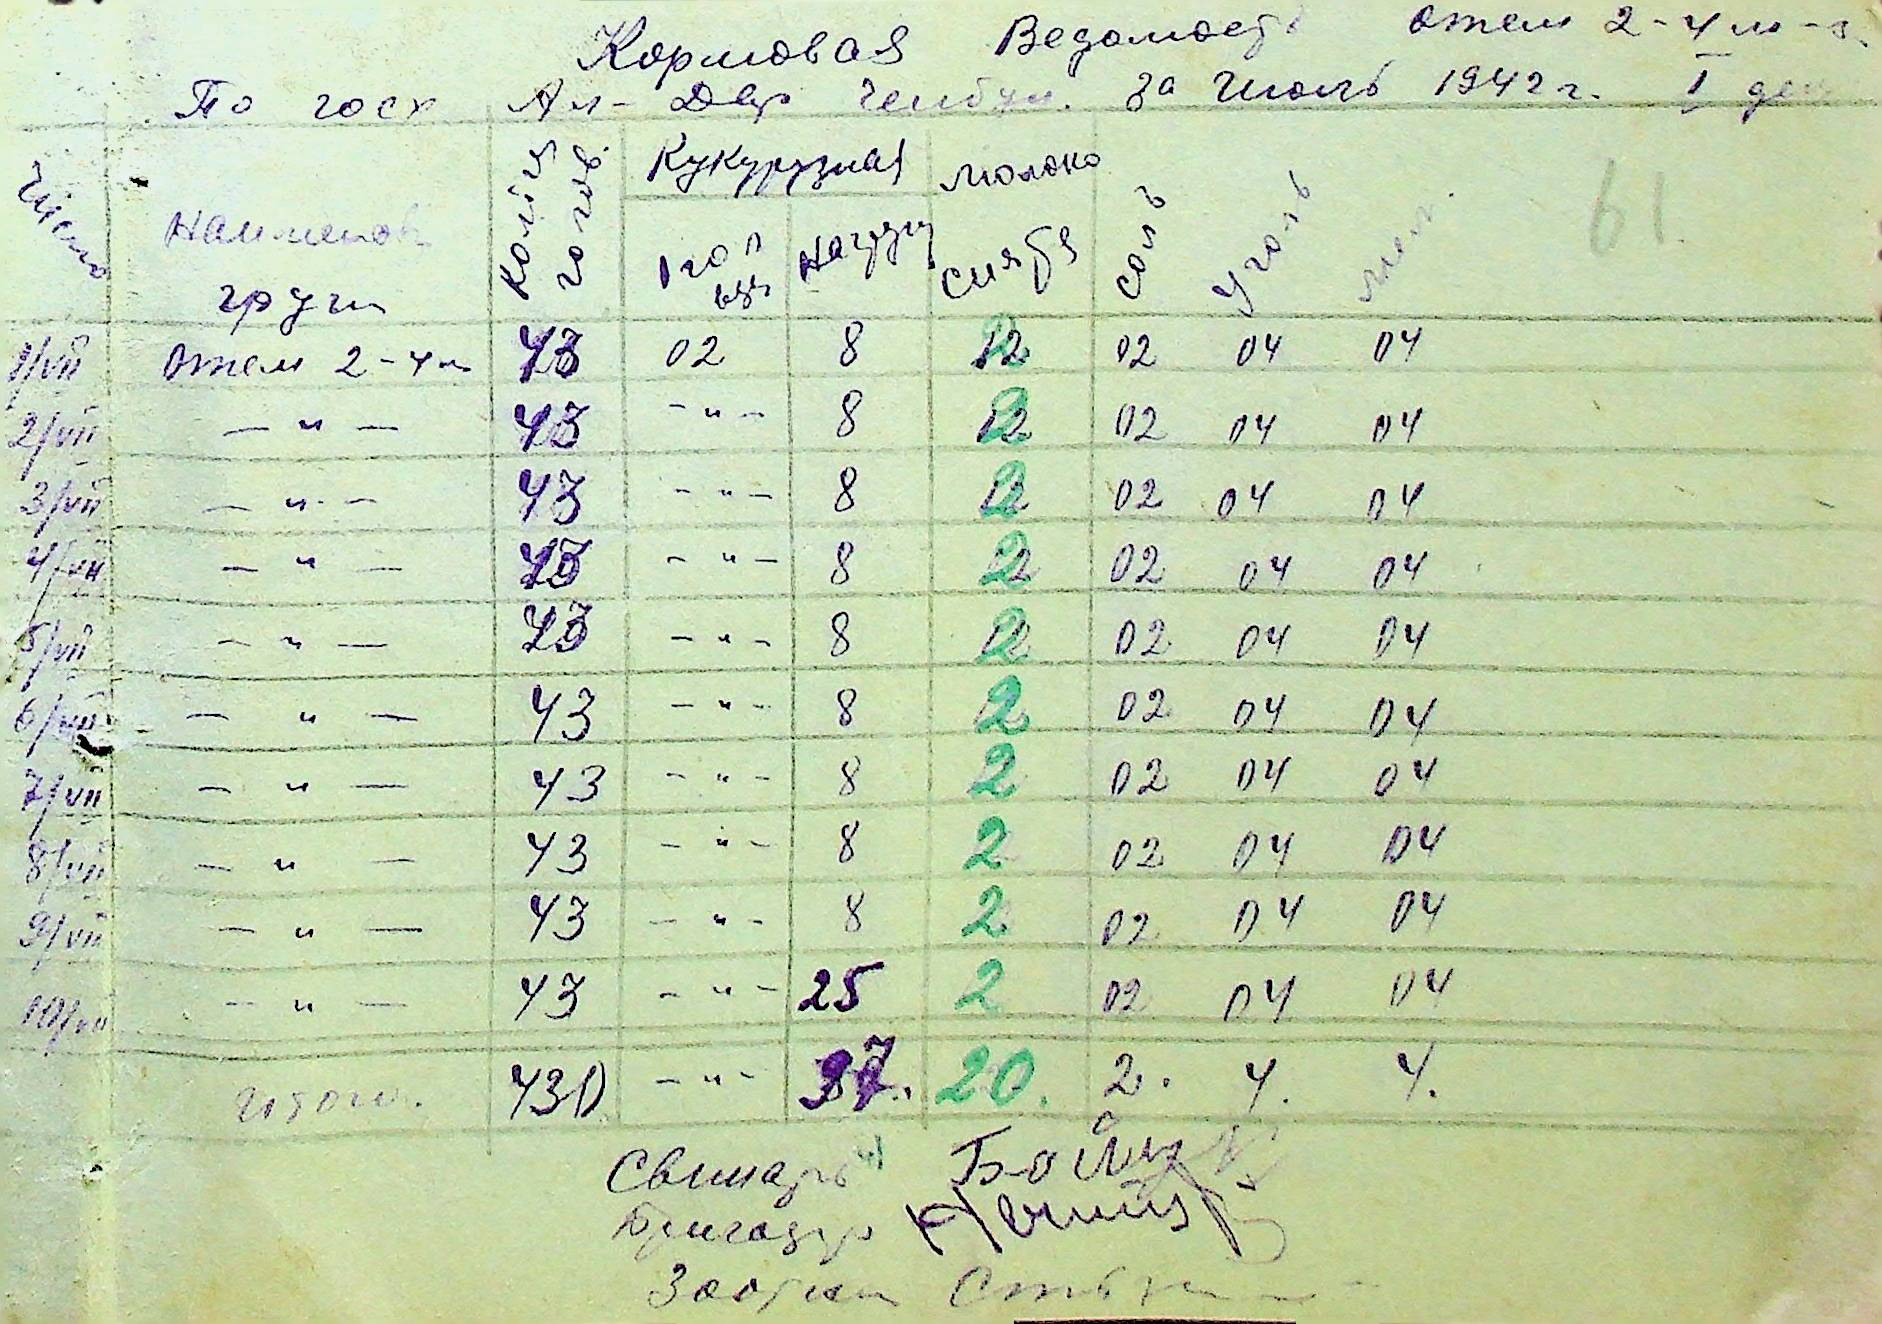 Кормовая Ведомость отем 2-4 м-ц.
По госх Ал- Дар за Июль 1942 г. I дек
Число
Наименов групп
Колич голов.
Кукурузная
1 гол
на группу
молоко снятое
соль
уголь
мел.
61.
1/VII отем 2-4 м 43 02 8 2 02 04 04
2/VII — " — 43 - " - 8 2 02 04 04
3/VII — " — 43 - " - 8 2 02 04 04
4/VII — " — 43 - " - 8 2 02 04 04
5/VII — " — 43 - " - 8 2 02 04 04
6/VII — " — 43 - " - 8 2 02 04 04
7/VII — " — 43 - " - 8 2 02 04 04
8/VII — " — 43 - " - 8 2 02 04 04
9/VII — " — 43 - " - 8 2 02 04 04
10/VII — " — 43 - " - 25 2 02 04 04
Итого. 430 - " - 97. 20. 2. 4. 4.
Свинарь
Бригадир
Зоотехн